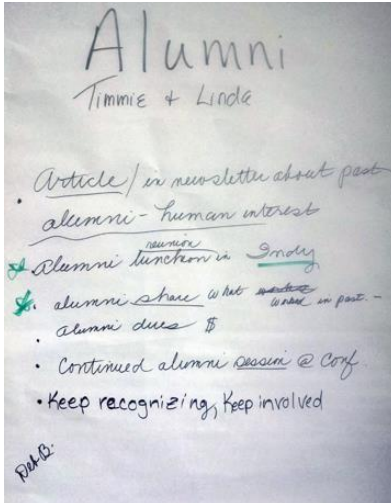 Alumni
Timmie & Linda
• Article / in newsletter about past
alumni - human interest
reunion
Alumni luncheon in Indy
• alumni share what worked in past. -
• alumni dues $
• Continued alumni session @ Conf.
• Keep recognizing, Keep involved
Deb B.